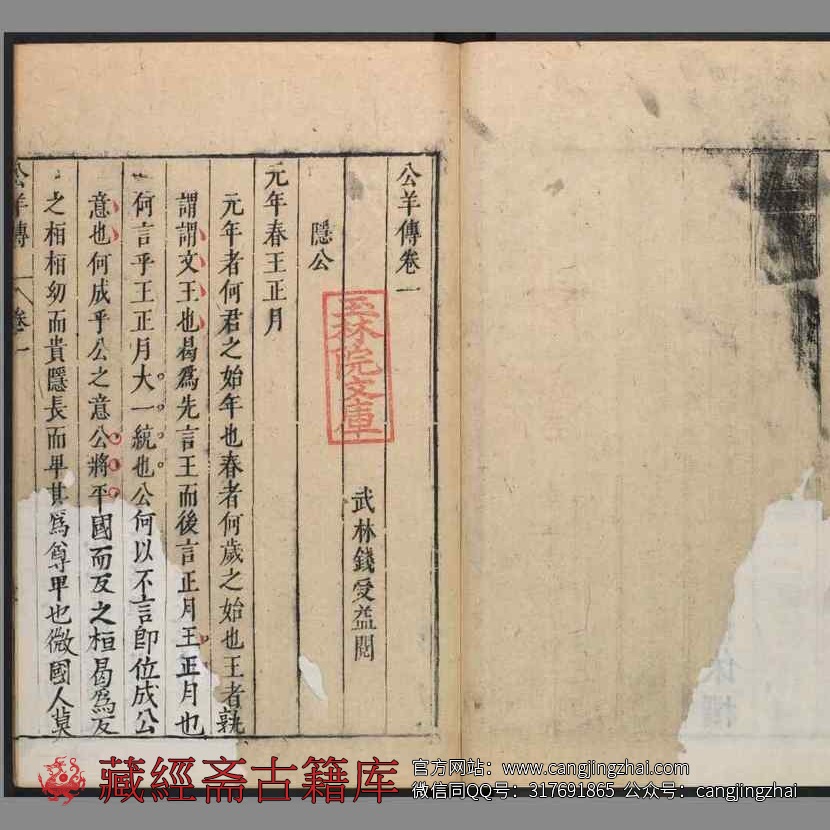 公羊傳卷一
武林錢受益閱
隱公
元年春王正月
元年者何君之始年也春者何歲之始也王者孰
謂謂文王也曷爲先言王而後言正月王正月也
何言乎王正月大一統也公何以不言卽位成公
意也何成乎公之意公將平國而反之桓曷爲反
之桓桓幼而貴隱長而卑其爲尊卑也微國人莫
公羊傳 卷一
林院文庫
藏經斋古籍库
官方网站：www.cangjingzhai.com
微信同QQ号：317691865 公众号：cangjingzhai